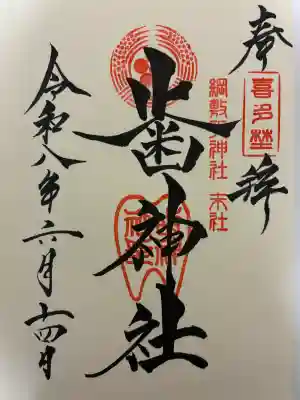 奉拝
喜多埜
綱敷天神社 末社
歯神社
令和八年六月十四日